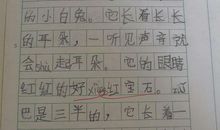 的小白兔。它长着长长
的耳朵,一听见声音就
会shù起耳朵。它的眼睛
红红的好xiàng红宝石。
巴是三半的,它长着一